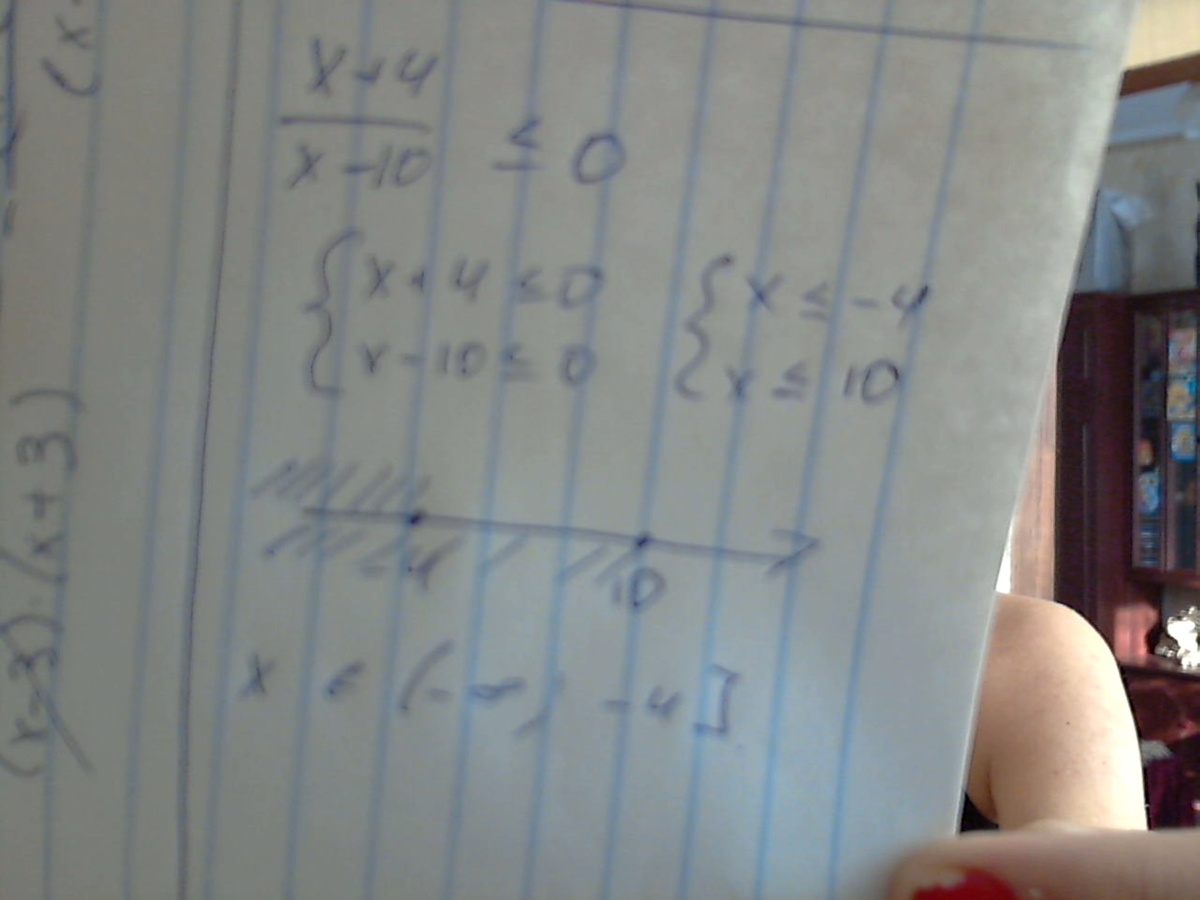 x+4
x-10 ≤ 0
{ x+4 ≤ 0 { x ≤ -4
x-10 ≤ 0 x ≤ 10
-4 10
x ∈ (-∞; -4]
(x-3)·(x+3)
(x-